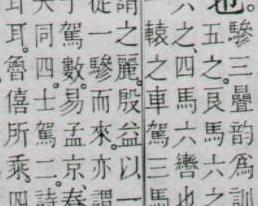 驂三疊韵爲訓
也。五之。良馬六之
六之、四馬六轡也
轅之車駕三馬
謂之麗。殷益以一
從一驂而來。亦謂
子駕數。易孟京春
大同四。士駕二。詩
耳耳。魯僖所乘。四